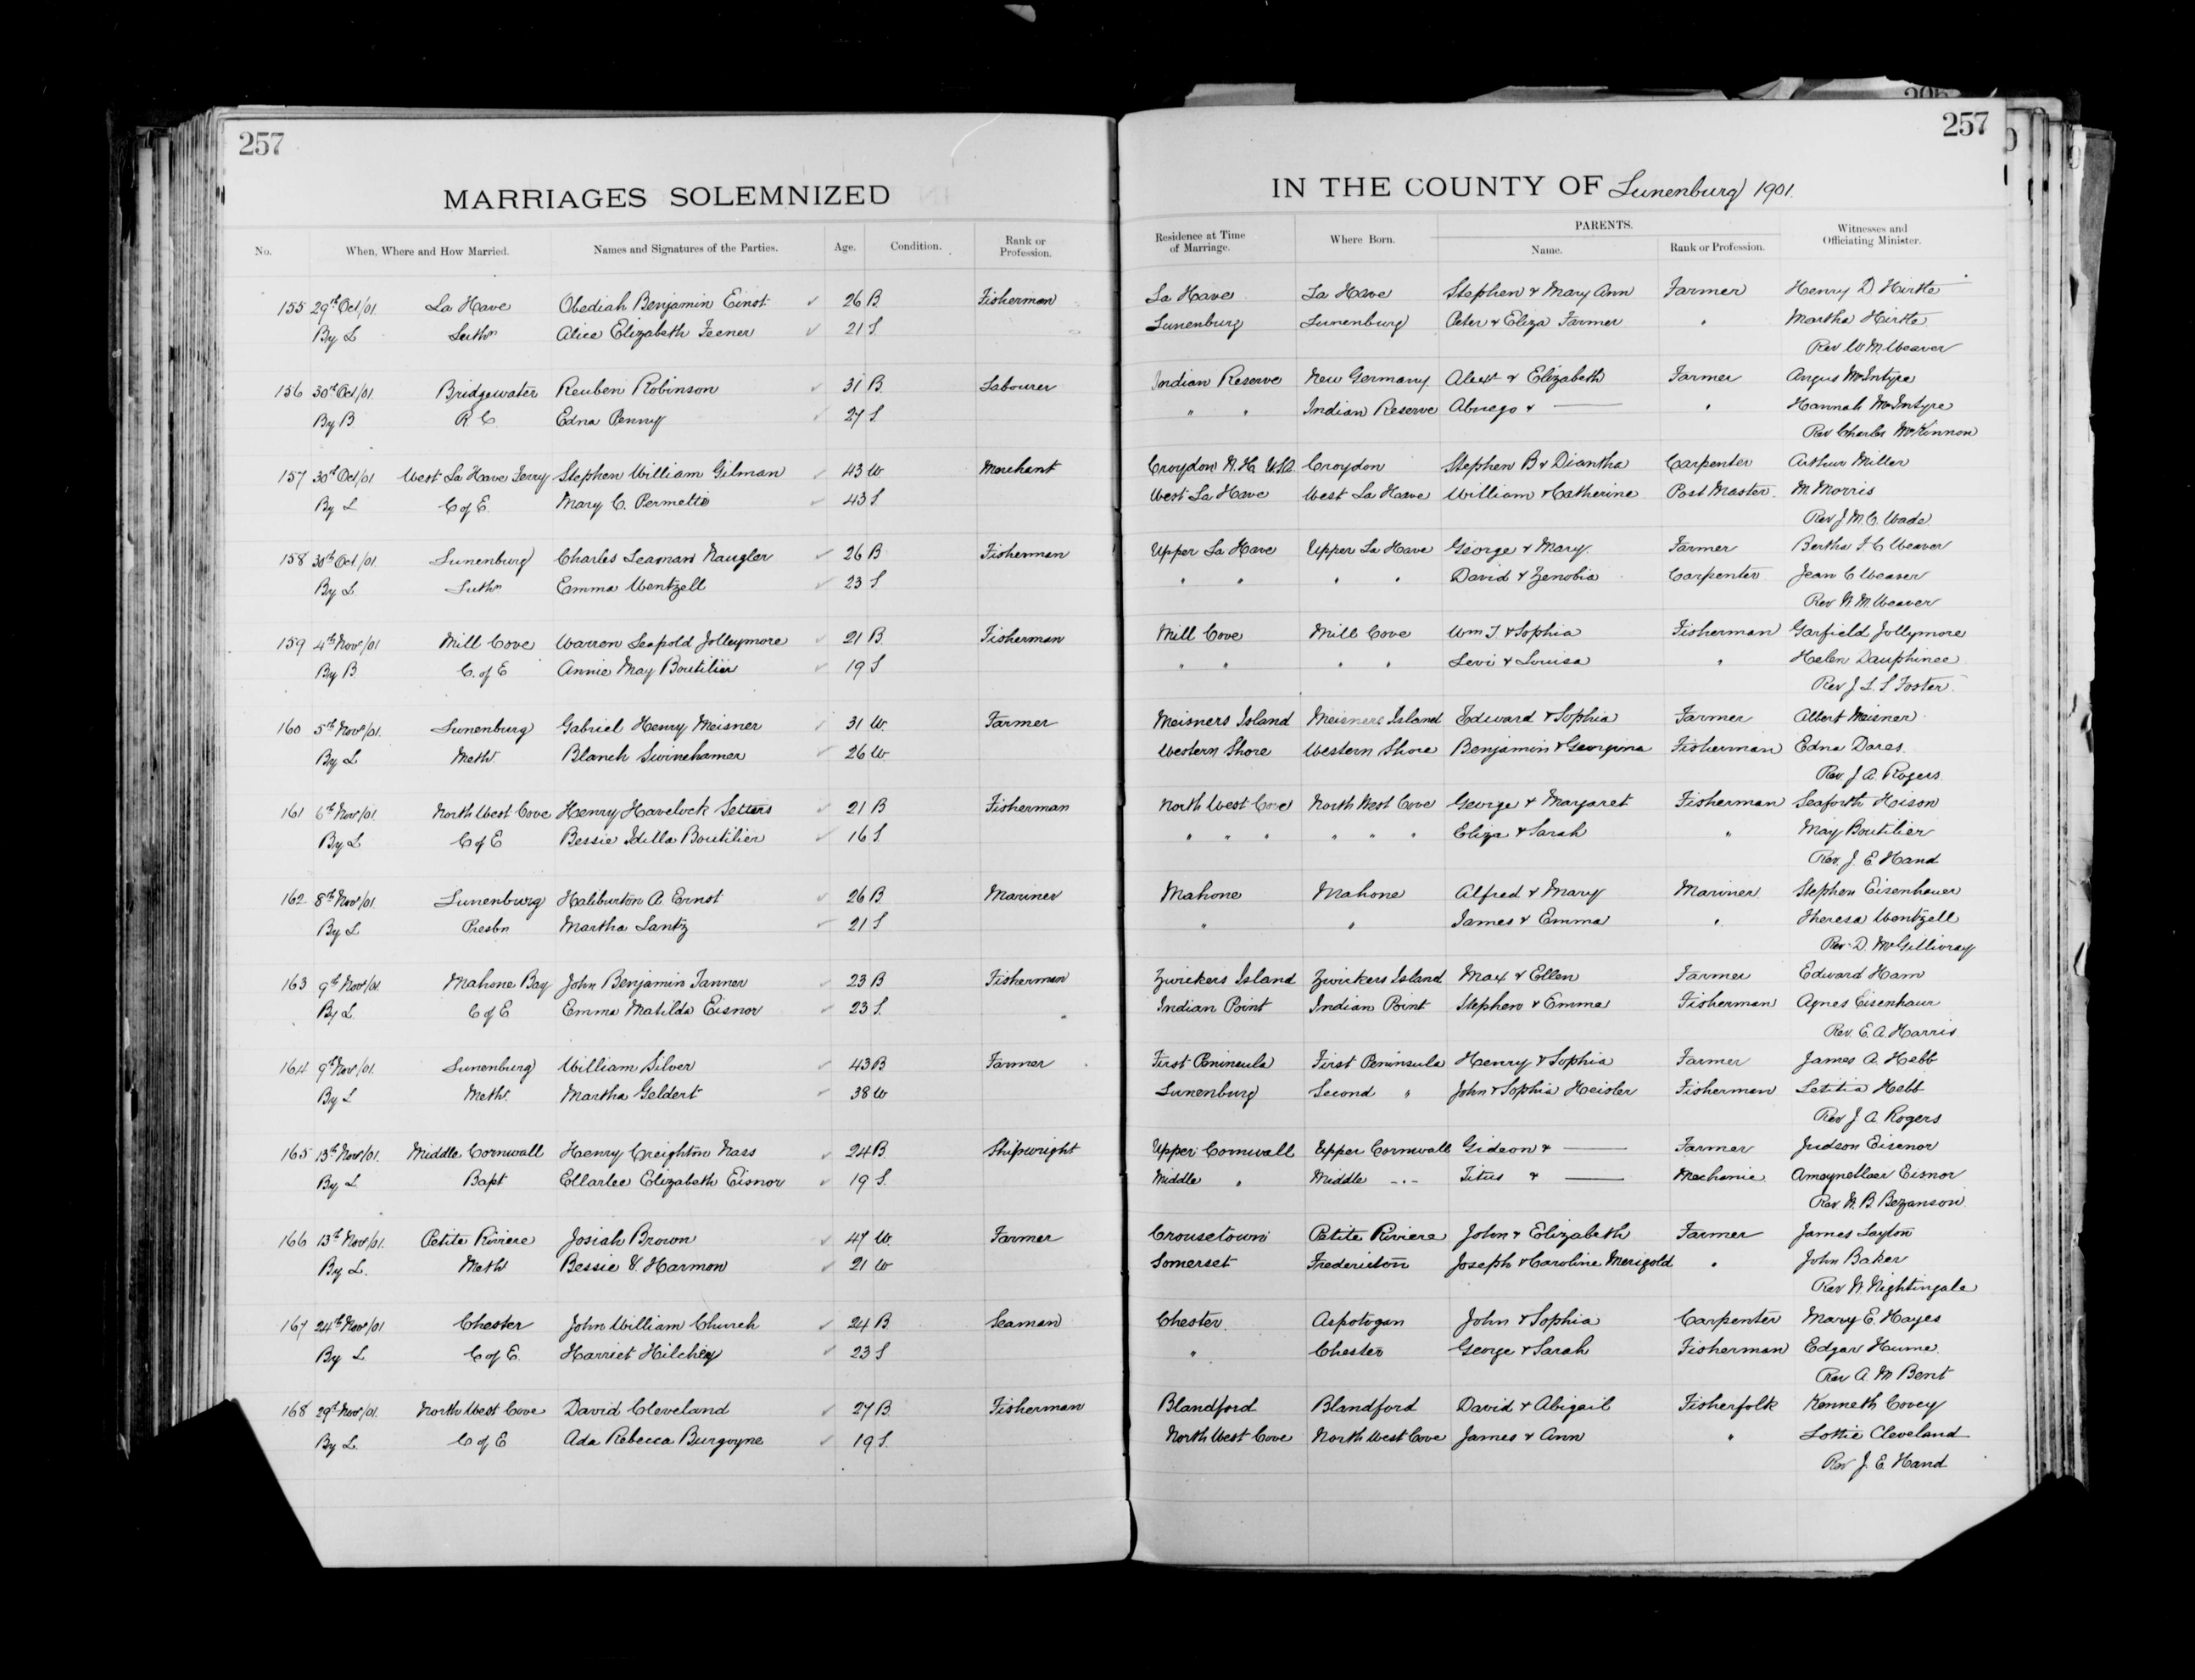 206
257
257
MARRIAGES SOLEMNIZED
IN THE COUNTY OF Lunenburg 1901.
No. When, Where and How Married. Names and Signatures of the Parties. Age. Condition. Rank or Profession. Residence at Time of Marriage. Where Born. PARENTS. Name. Rank or Profession. Witnesses and Officiating Minister.
155 29th Oct/01. La Have Obediah Benjamin Einst 26 B. Fisherman La Have La Have Stephen & Mary Ann Farmer Henry D. Hirtle
By L Luthn Alice Elizabeth Feener 21 S. Lunenburg Lunenburg Peter & Eliza Farmer " Martha Hirtle
Rev W. M. Weaver
156 30th Oct/01. Bridgewater Reuben Robinson 31 B. Labourer Indian Reserve New Germany Alext & Elizabeth Farmer Angus McIntyre
By B. R. C. Edna Penny 27 S. " " Indian Reserve Abnego & — " Hannah McIntyre
Rev Charles McKinnon
157 30th Oct/01 West La Have Ferry Stephen William Gilman 43 W. Merchant Croydon N. H. USA. Croydon Stephen B & Diantha Carpenter Arthur Miller
By L C of E. Mary C. Permette 43 S. West La Have West La Have William & Catherine Post Master M. Morris
Rev J. M. C. Wade
158 30th Oct./01. Lunenburg Charles Leaman Naugler 26 B Fisherman Upper La Have Upper La Have George & Mary Farmer Bertha F. C Weaver
By L. Luthn Emma Wentzell 23 S. " " " " David & Zenobia Carpenter Jean C Weaver
Rev W. M. Weaver
159 4th Nov/01 Mill Cove Warren Leopold Jolleymore 21 B. Fisherman Mill Cove Mill Cove Wm J & Sophia Fisherman Garfield Jollymore
By B C. of E Annie May Boutilier 19 S " " " " Levi & Louisa " Helen Dauphinee
Rev J. L. S Foster
160 5th Nov/01. Lunenburg Gabriel Henry Meisner 31 W. Farmer Meisners Island Meisners Island Edward & Sophia Farmer Albert Meisner
By L Meth. Blanch Swinehamer 26 W. Western Shore Western Shore Benjamin & Georgina Fisherman Edna Dares.
Rev. J. A. Rogers
161 6th Nov/01 North West Cove Henry Havelock Setters 21 B Fisherman North West Cove North West Cove George & Margaret Fisherman Seaforth Hison
By L C of E Bessie Idilla Boutilier 16 S. " " " " " " Eliza & Sarah " May Boutilier
Rev. J. E. Hand
162 8th Nov/01. Lunenburg Haliburton A. Ernst 26 B. Mariner Mahone Mahone Alfred & Mary Mariner Stephen Eisenhauer
By L Presbn Martha Lantz 21 S " " James & Emma " Theresa Wentzell
Rev. D. McGillivray
163 9th Nov/01. Mahone Bay John Benjamin Tanner 23 B Fisherman Zwickers Island Zwickers Island Max & Ellen Farmer Edward Ham
By L. C of E Emma Matilda Eisnor 23 S. " Indian Point Indian Point Stephen & Emma Fisherman Agnes Eisenhaur
Rev. E. A. Harris
164 9th Nov/01. Lunenburg William Silver 43 B Farmer First Peninsula First Peninsula Henry & Sophia Farmer James A. Hebb
By L Meth. Martha Geldert 38 W Lunenburg Second " John & Sophia Heisler Fisherman Letitia Hebb
Rev J. A. Rogers
165 13th Nov/01. Middle Cornwall Henry Creighton Nass 24 B. Shipwright Upper Cornwall Upper Cornwall Gideon & — Farmer Judson Eisenor
By L. Bapt Ellarlee Elizabeth Eisnor 19 S. Middle " Middle -"- Titus & — Mechanic Eisnor
Rev. W. B. Bezanson
166 13th Nov/01. Petite Riviere Josiah Brown 47 W. Farmer Crousetown Petite Riviere John & Elizabeth Farmer James Layton
By L. Meth Bessie V. Harmon 21 W Somerset Fredericton Joseph & Caroline Merigold " John Baker
Rev W. Nightingale
167 24th Nov/01 Chester John William Church 24 B. Seaman Chester. Aspotogan John & Sophia Carpenter Mary E. Hayes
By L C of E. Harriet Hilchey 23 S " Chester George & Sarah Fisherman Edgar Hume.
Rev A. M. Bent
168 29th Nov/01. North West Cove David Cleveland 27 B. Fisherman Blandford Blandford David & Abigail Fisherfolk Kenneth Covey
By L. C of E Ada Rebecca Burgoyne 19 S. North West Cove North West Cove James & Ann " Lottie Cleveland
Rev J. E. Hand